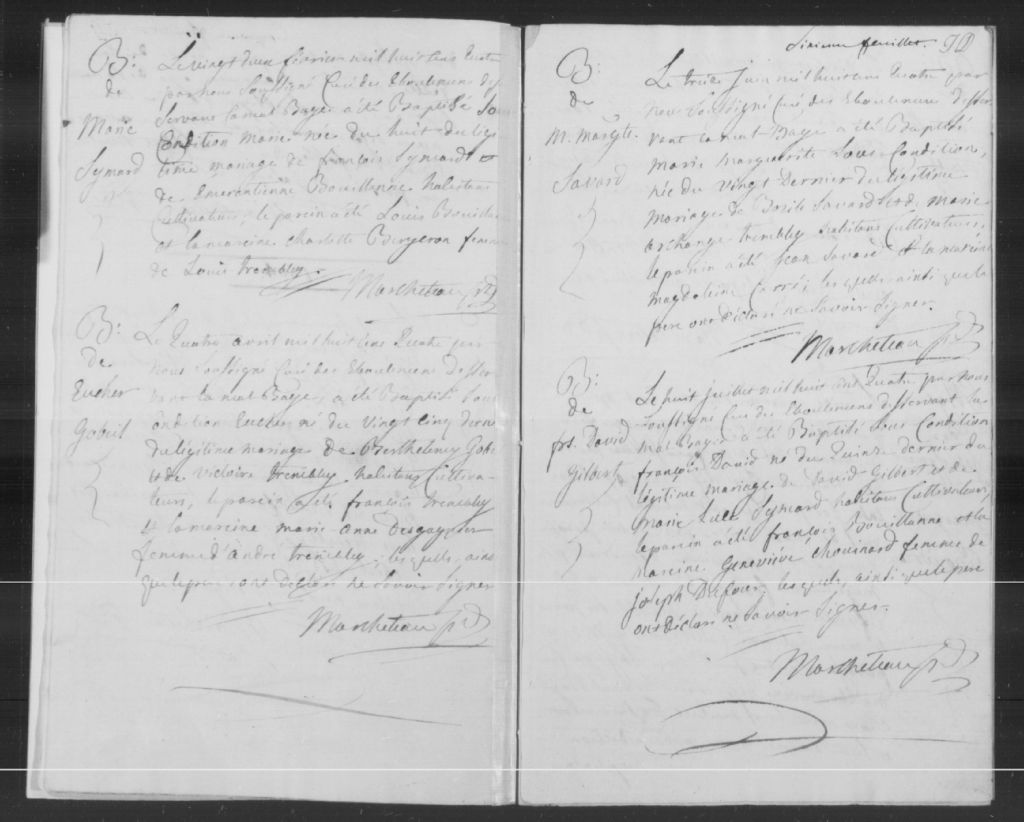 B:
de
Marie
Symard
Le vingt deux fevrier mil huit cens Quatre
par nous soussigné Curé des Eboulemens des
servant la mal Baye a été Baptisé sous
Condition marie née du huit du legi
time mariage de françois Symard et
de Emerentienne Bouillanne habitans
Cultivateurs, le parein a été Louis Bouilla
et la mareine charlotte Bergeron femme
de Louis trembley.
Marcheteau ptr
B:
de
Eucher
Gobeil
Le Quatre avril mil huit cens Quatre par
nous soussigné Curé des Eboulemens desser
vant la mal Baye, a été Baptisé sous
Condition Eucher né du vingt cinq dernier
du légitime mariage de Berthelemy Gobe
et de victoire trembley habitans Cultiva-
teurs, le parein a été françois trembley
et la mareine marie anne Desgagner
femme d'andré trembley; lesquels, ainsi
que le pere ont déclaré ne savoir signer
Marcheteau ptr
Sixieme feuillet.
B:
de
M. Margte.
Savard
Le treize juin mil huit cens Quatre par
nous soussigné Curé des Eboulemens desser
vant la mal Baye a été Baptisé
marie marguerite sous Condition,
née du vingt Dernier du légitime
mariage de Basile Savard et de marie
archange trembley habitans Cultivateurs,
le parein a été jean Savard et la mareine
magdeleine Carré; lesquels ainsi que le
pere ont déclaré ne Savoir signer.
Marcheteau ptr
B:
de
frs. David
Gilbert
Le huit juillet mil huit cens Quatre par nous
soussigné Curé des Eboulemens desservant la
mal Baye a été Baptisé sous Condition
françois David né du Quinze dernier du
légitime mariage de David Gilbert et de
Marie Symard habitans Cultivateurs,
le parein a été françois Bouillanne et la
mareine Geneviéve Chouinard femme de
joseph Dufour; lesquels, ainsi que le pere
ont déclaré ne savoir signer.
Marcheteau ptr